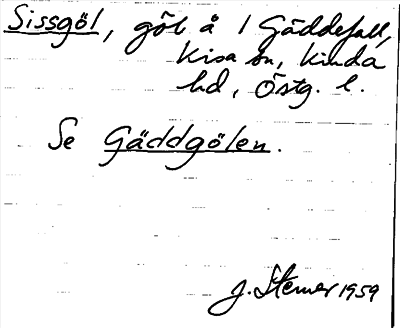 Sissgöl, göl å 1 Gäddefall,
Kisa sn, Kinda
hd, Östg. l.
Se Gäddgölen.
J. Sterner 1959